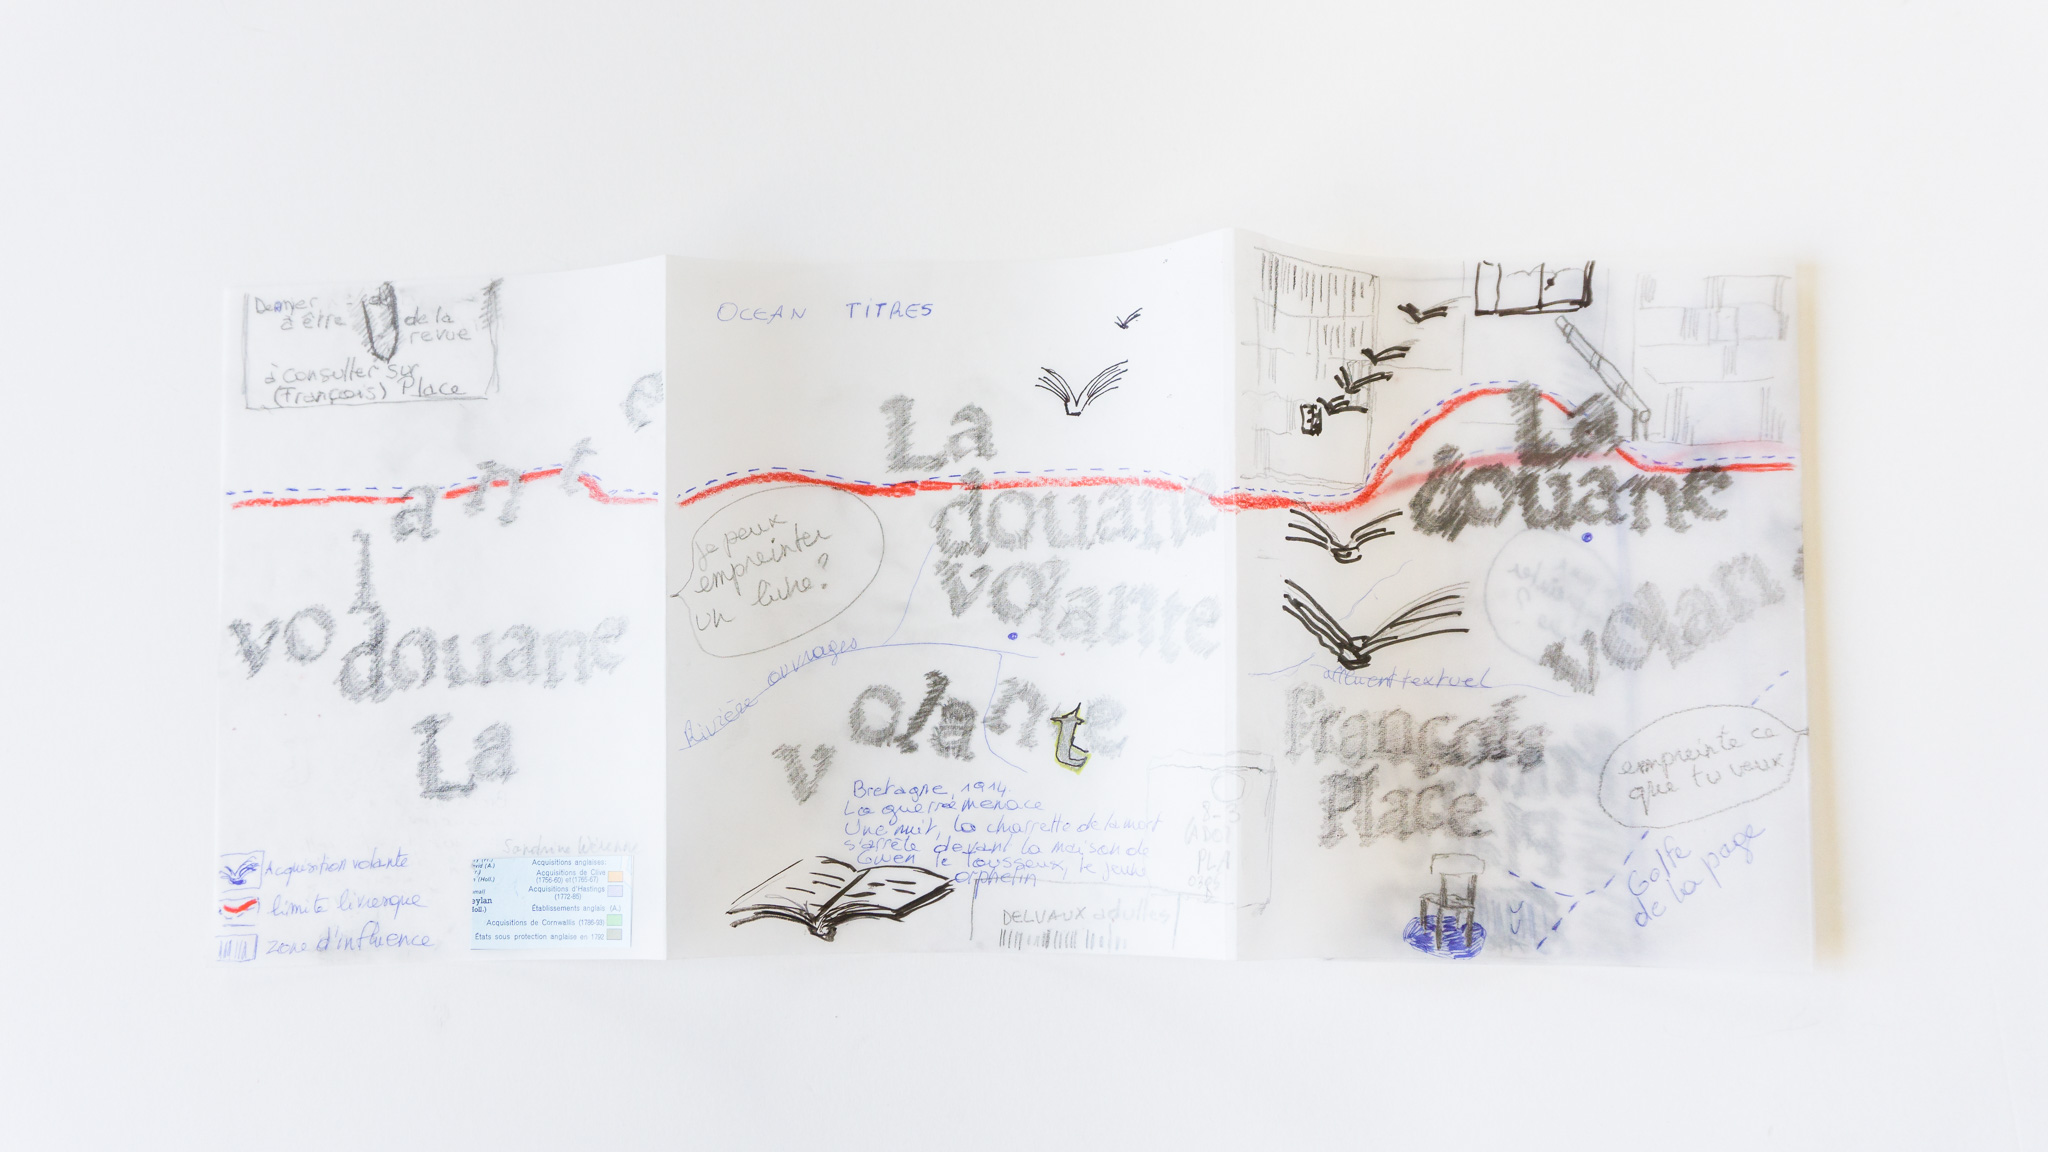 Dernier
à être
de la
revue
à consulter sur
(François) Place
e
l a n t
vo
douane
La
Acquisition volante
limite livresque
zone d'influence
Sandrine
Acquisitions anglaises:
Acquisitions de Clive
(1756-60) et (1765-67)
Acquisitions d'Hastings
(1772-85)
Établissements anglais (A.)
Acquisitions de Cornwallis (1786-93)
États sous protection anglaise en 1792
OCEAN TITRES
La
douane
volante
Je peux
empreinter
un livre?
Rivière ouvrages
volante
Bretagne, 1914.
La guerre menace
Une nuit, la charrette de la mort
s'arrête devant la maison de
Gwen le Tousseux, le jeune
orphelin
DELVAUX adultes
La
douane
volan
affluent textuel
François
Place
empreinte ce
que tu veux
Golfe
de la page